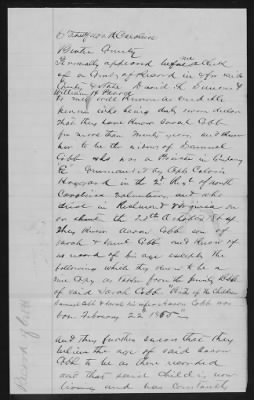 State of North Carolina
Bertie County
Personally appeared before me Clerk
of a Court of Record in & for said
County & State David R. Dunin &
William H. Peord
to me well known as credible
persons who being duly sworn declare
that they have known Sarah Cobb
for more than twenty years, and knew
her to be the widow of Samuel
Cobb who was a Private in Company
"E" Commanded by Capt Calvin
Hoggard in the 2nd Regt of North
Carolina Volunteers, and who
died in Richmond Virginia on
or about the 28th October 186
they know Aaron Cobb son of
Sarah & Saml Cobb and know of
no record of his age except the
following which they know to be a
true copy as taken from the family Bible
of said Sarah Cobb "Births of the Children
Samuel Cobb & Sarah his wife Aaron Cobb was
born February 22nd 1855"
and they further swear that they
believe the age of said Aaron
Cobb to be as there recorded
and that said child is now
living and has constantly